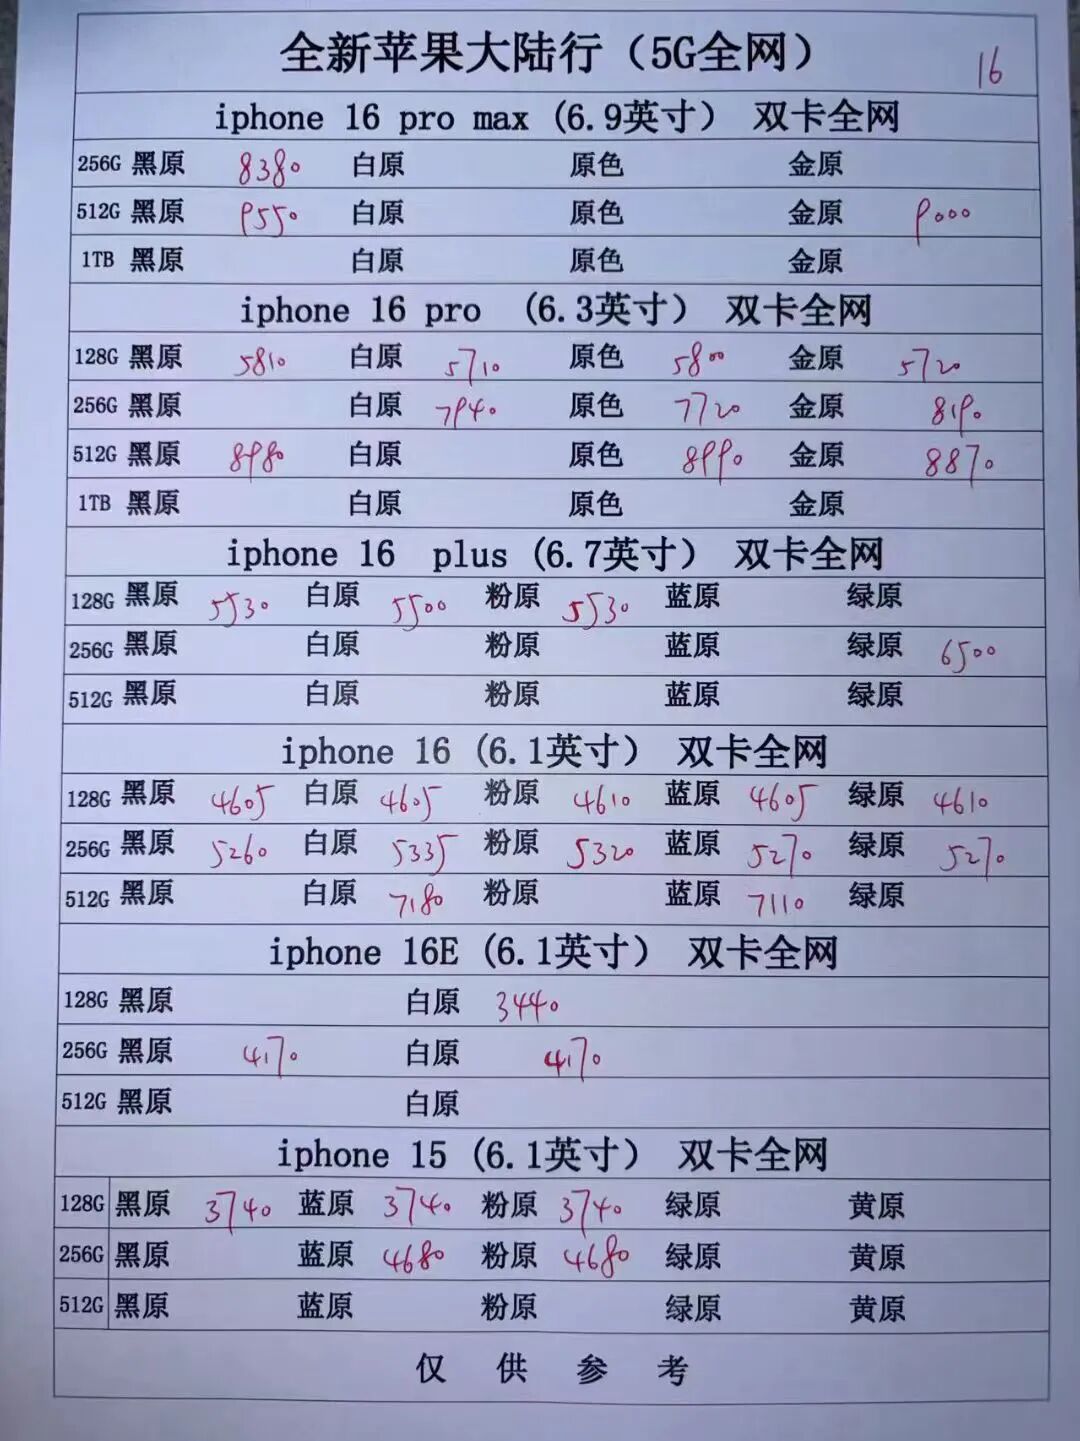 全新苹果大陆行（5G全网） 16
iphone 16 pro max (6.9英寸） 双卡全网
256G 黑原 8380 白原 原色 金原
512G 黑原 9550 白原 原色 金原 9000
1TB 黑原 白原 原色 金原
iphone 16 pro (6.3英寸） 双卡全网
128G 黑原 5810 白原 5710 原色 5800 金原 5720
256G 黑原 白原 7940 原色 7720 金原 8190
512G 黑原 8980 白原 原色 8990 金原 8870
1TB 黑原 白原 原色 金原
iphone 16 plus (6.7英寸） 双卡全网
128G 黑原 5530 白原 5500 粉原 5530 蓝原 绿原
256G 黑原 白原 粉原 蓝原 绿原 6500
512G 黑原 白原 粉原 蓝原 绿原
iphone 16 (6.1英寸） 双卡全网
128G 黑原 4605 白原 4605 粉原 4610 蓝原 4605 绿原 4610
256G 黑原 5260 白原 5335 粉原 5320 蓝原 5270 绿原 5270
512G 黑原 白原 7180 粉原 蓝原 7110 绿原
iphone 16E (6.1英寸） 双卡全网
128G 黑原 白原 3440
256G 黑原 4170 白原 4170
512G 黑原 白原
iphone 15 (6.1英寸） 双卡全网
128G 黑原 3740 蓝原 3740 粉原 3740 绿原 黄原
256G 黑原 蓝原 4680 粉原 4680 绿原 黄原
512G 黑原 蓝原 粉原 绿原 黄原
仅 供 参 考